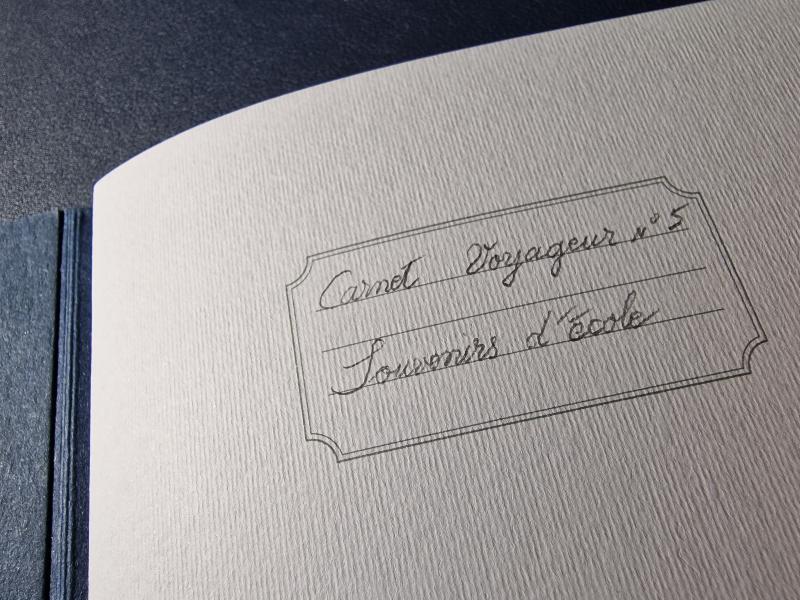 Carnet Voyageur N° 5
Souvenirs d'école